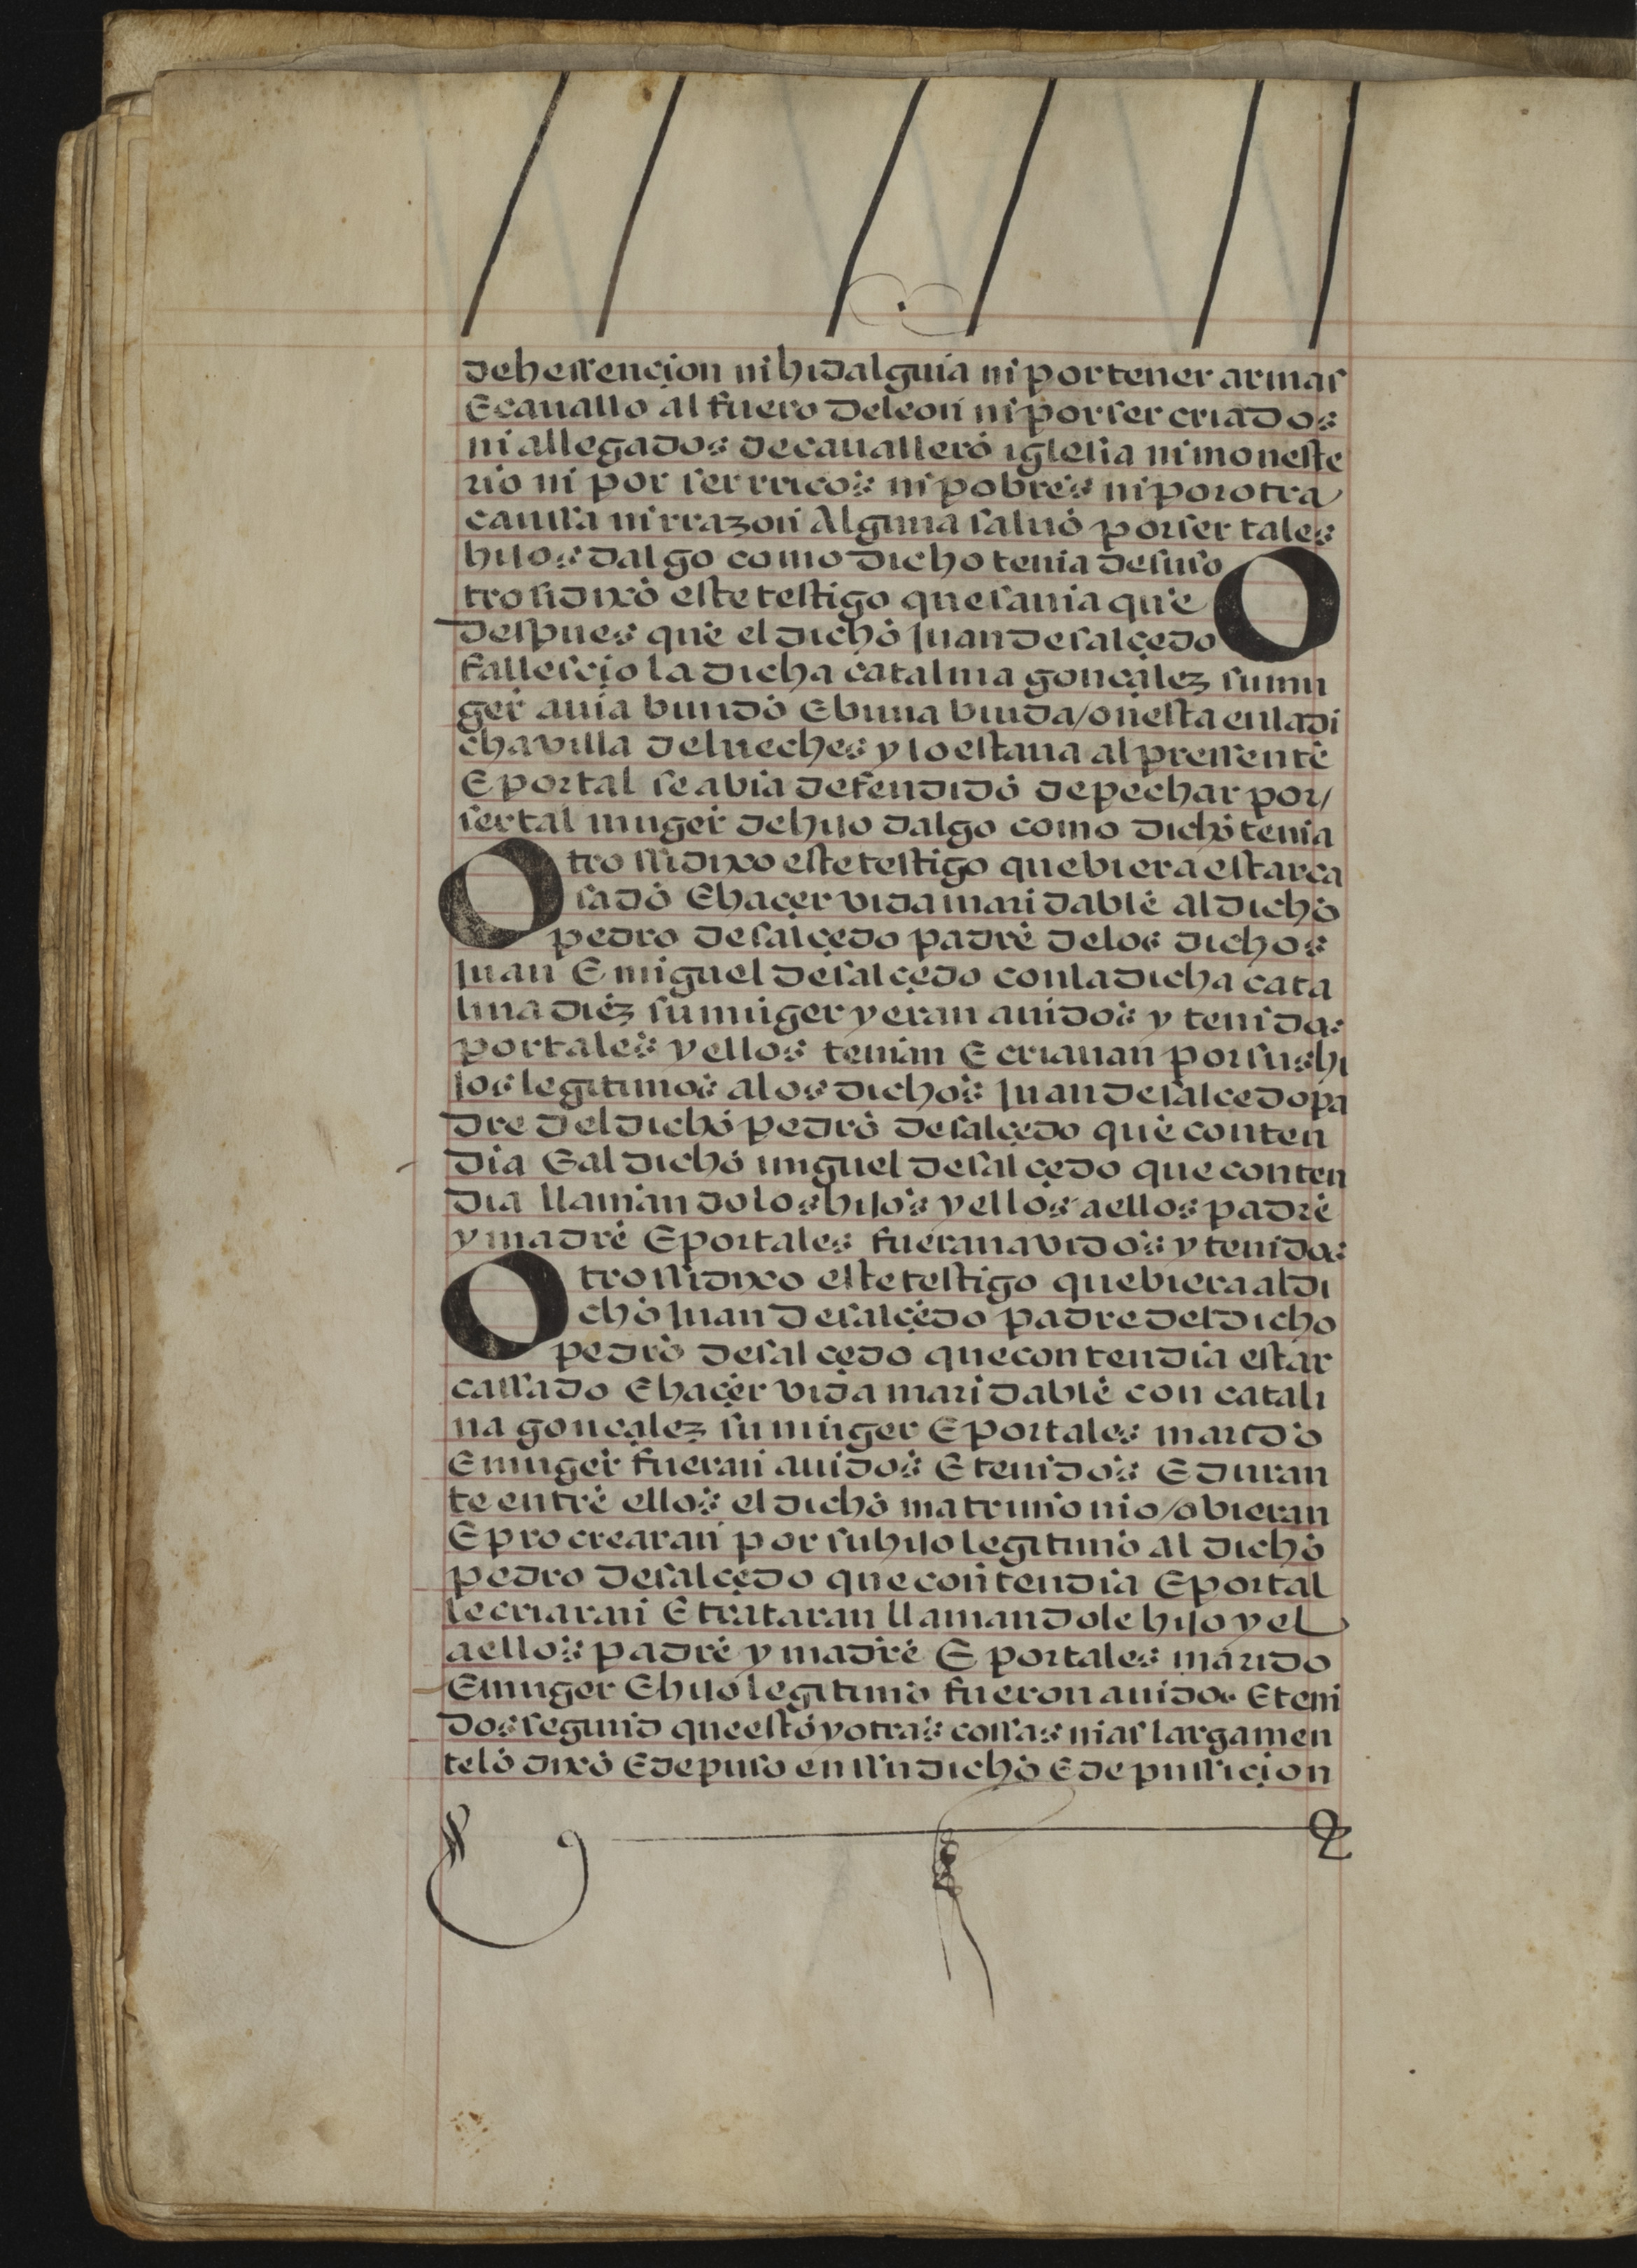 dehessençion ni hidalguia ni por tener armas
E cauallo al fuero de leon ni por ser criados
ni allegados de cauallero iglesia ni moneste
rio ni por ser rricos ni pobres ni por otra
caussa ni rrazon Alguna saluo por ser tales
hijos dalgo como dicho tenia desuso O
trosi dixo este testigo que sauia que
despues que el dicho juan de salçedo
fallesçio la dicha catalina gonçalez su mu
ger auia biuido E biuia biuda / onesta en la di
cha villa de lueches y lo estaua al pressente
E por tal se abia defendido de pechar por /
ser tal muger de hijo dalgo como dicho tenia
Otro ssi dixo este testigo que biera estar ca
sado E haçer vida maridable al dicho
pedro de salçedo padre de los dichos
juan E miguel de salçedo con la dicha cata
lina diez su muger y eran auidos y tenidos
por tales y ellos tenian E criauan por sus hi
jos legitimos a los dichos juan de salcedo pa
dre del dicho pedro de salçedo que conten
dia E al dicho miguel de salçedo que conten
dia llamandolos hijos y ellos a ellos padre
y madre E por tales fueran avidos y tenidos
Otro ssi dixo este testigo que biera al di
cho juan de salçedo padre del dicho
pedro de salçedo que contendia estar
cassado E haçer vida maridable con catali
na gonçalez su muger E por tales marido
E muger fueran auidos E tenidos E duran
te entre ellos el dicho matrimonio / obieran
E procrearan por su hijo legitimo al dicho
pedro de salçedo que contendia E por tal
le criaran E trataran llamandole hijo y el
a ellos padre y madre E por tales marido
E muger E hijo legitimo fueron auidos E teni
dos segund que esto y otras cossas mas largamen
te lo dixo E depuso en ssu dicho E depussiçion